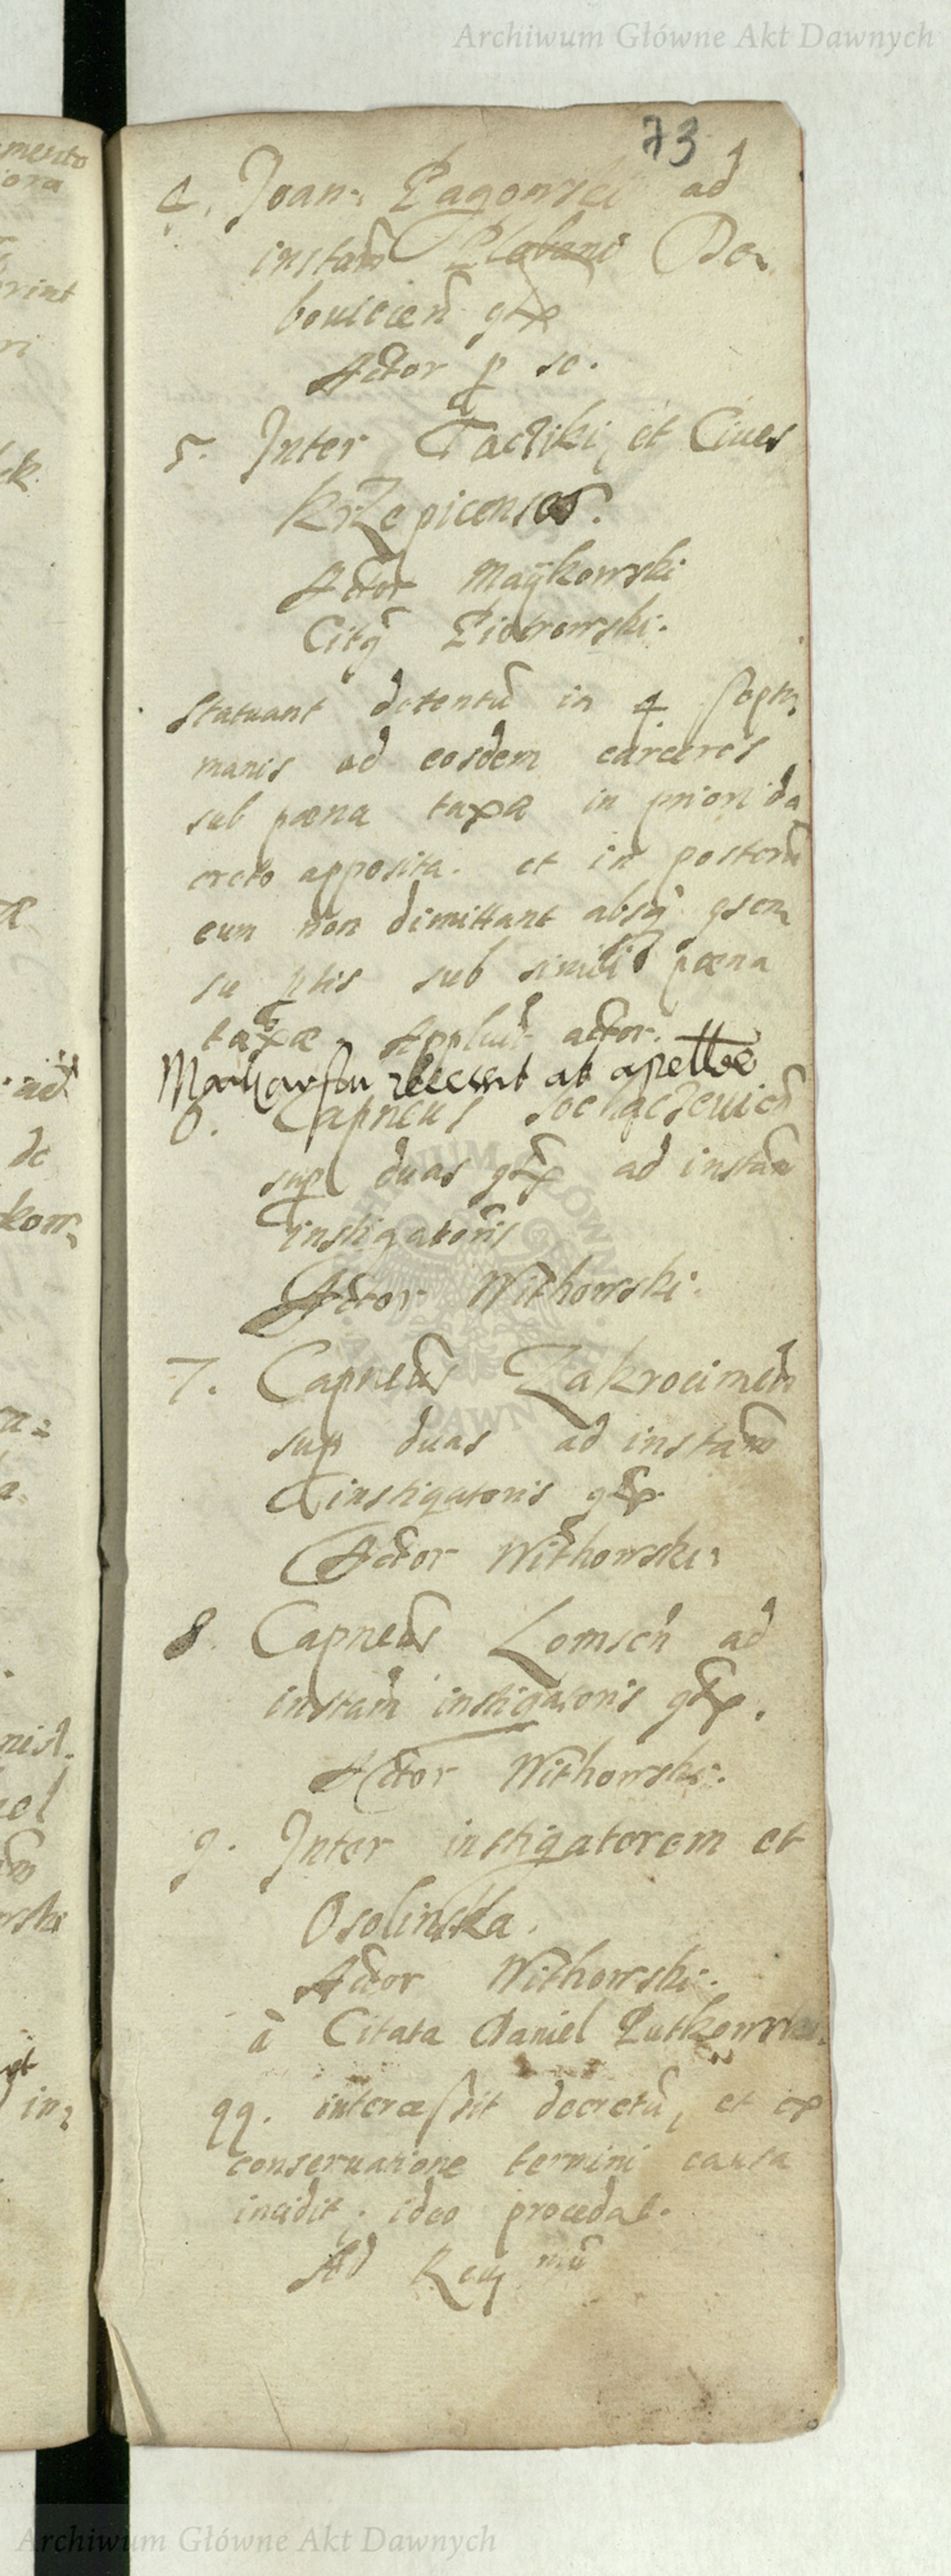 Archiwum Główne Akt Dawnych
73
4. Joan: Pagowski ad
instam Plebani Do
bouicien gtx
Actor p se.
5. Inter Taczliki et Ciues
Krzepicenses.
Actor Maÿkowski
Citq Piotrowski.
Statuant detentu in 4 septi
manis ad eosdem carceres
sub pœna taxæ in priori de
creto apposita. et in posteru
eum non dimittant absq gsen
su ptis sub simili pœna
taxæ. Appluit actor.
recessit ab apellœ
6. Capneus Sochaczeuien
sup duas gtx ad instam
instigatoris
Actor Withowski.
7. Capneus Zakrocimen
sup duas ad instam
instigatoris gtx
Actor Withowski:
8. Capneus Lomsen ad
instam instigatoris gtx.
Actor Withowski.
9. Inter instigatorem et
Osolinska.
Actor Withowski.
à Citata Daniel Rutkowski.
qq. intercessit decretu, et ex
conseruatione termini causa
incidit; ideo procedat.
Ad Reg mu
Archiwum Główne Akt Dawnych